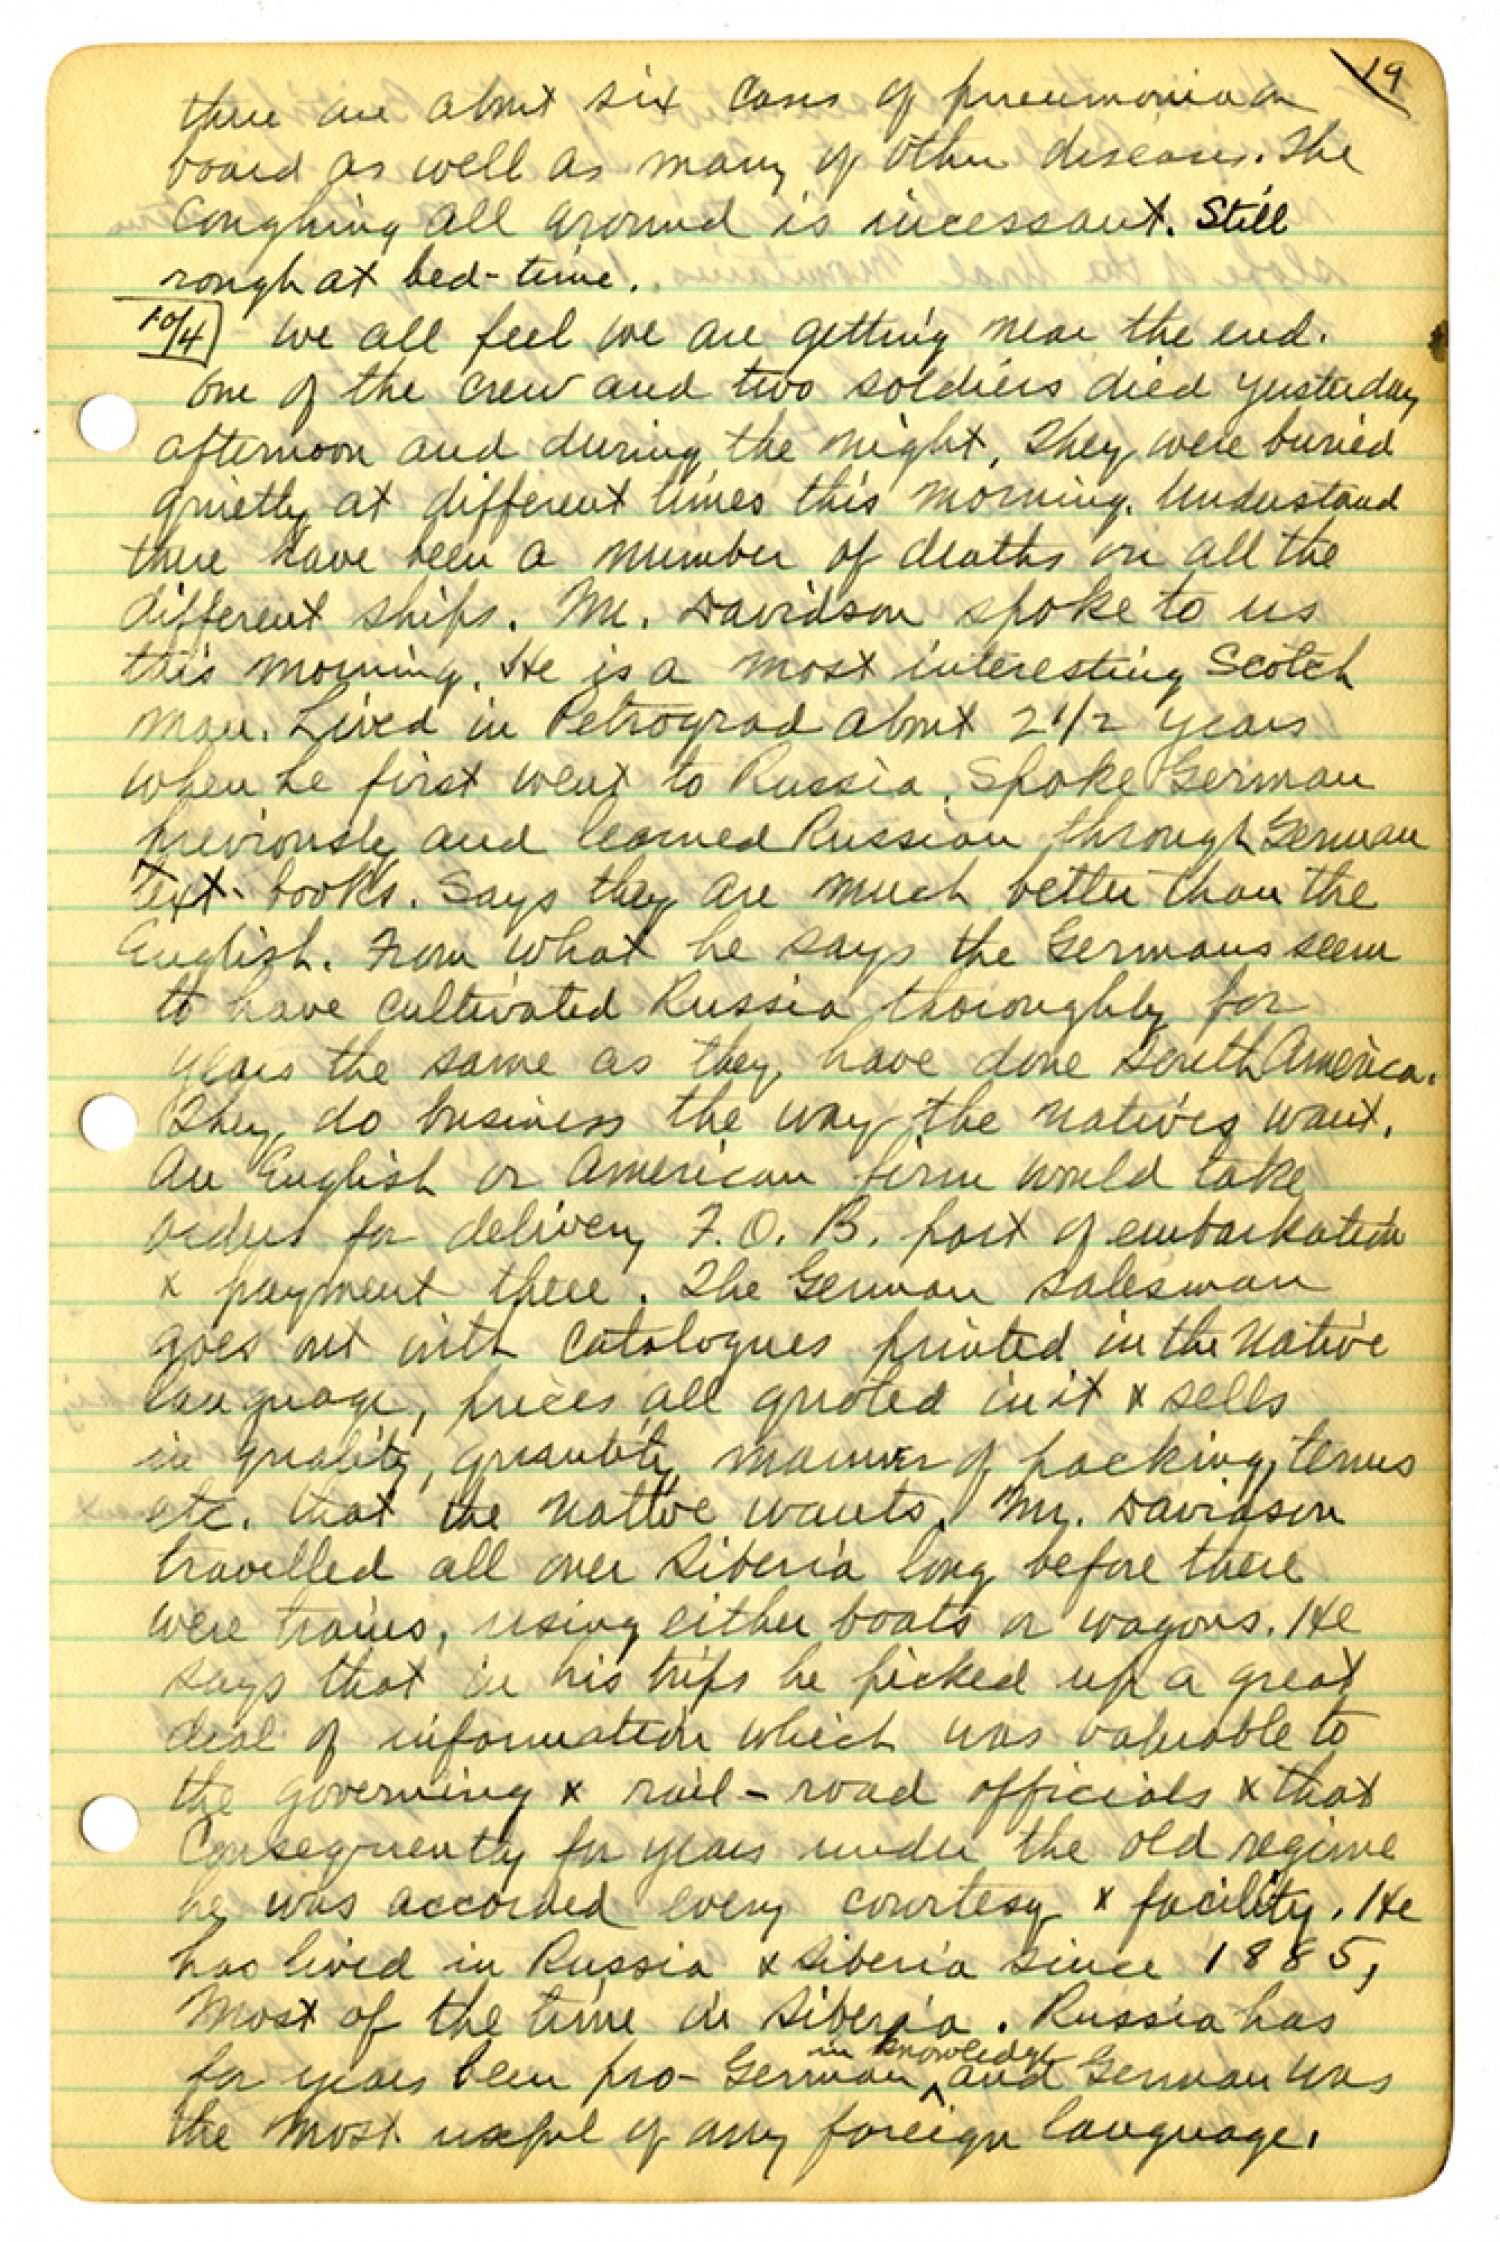 19
there are about six cases of pneumonia on
board as well as many of other diseases. The
coughing all around is incessant. Still
rough at bed-time.
10/4 We all feel we are getting near the end.
One of the crew and two soldiers died yesterday
afternoon and during the night. They were buried
quietly at different times this morning. Understand
there have been a number of deaths on all the
different ships. Mr. Davidson spoke to us
this morning. He is a most interesting Scotch
man. Lived in Petrograd about 2 1/2 years
when he first went to Russia. Spoke German
previously and learned Russian through German
text-books. Says they are much better than the
English. From what he says the Germans seem
to have cultivated Russia thoroughly for
years the same as they have done South America.
They do business the way the natives want.
An English or American firm would take
orders for delivery F.O.B. port of embarkation
x payment there. The German salesman
goes out with catalogues printed in the native
language, prices all quoted in it x sells
in quality, quantity, manner of packing, terms
etc. that the native wants. Mr. Davidson
travelled all over Siberia long before there
were trains, using either boats or wagons. He
says that in his trips he picked up a great
deal of information which was valuable to
the governing x rail-road officials x that
consequently for years under the old regime
he was accorded every courtesy x facility. He
has lived in Russia x Siberia since 1885,
most of the time in Siberia. Russia has
in knowledge
for years been pro-German ^ and German was
the most useful of any foreign language.